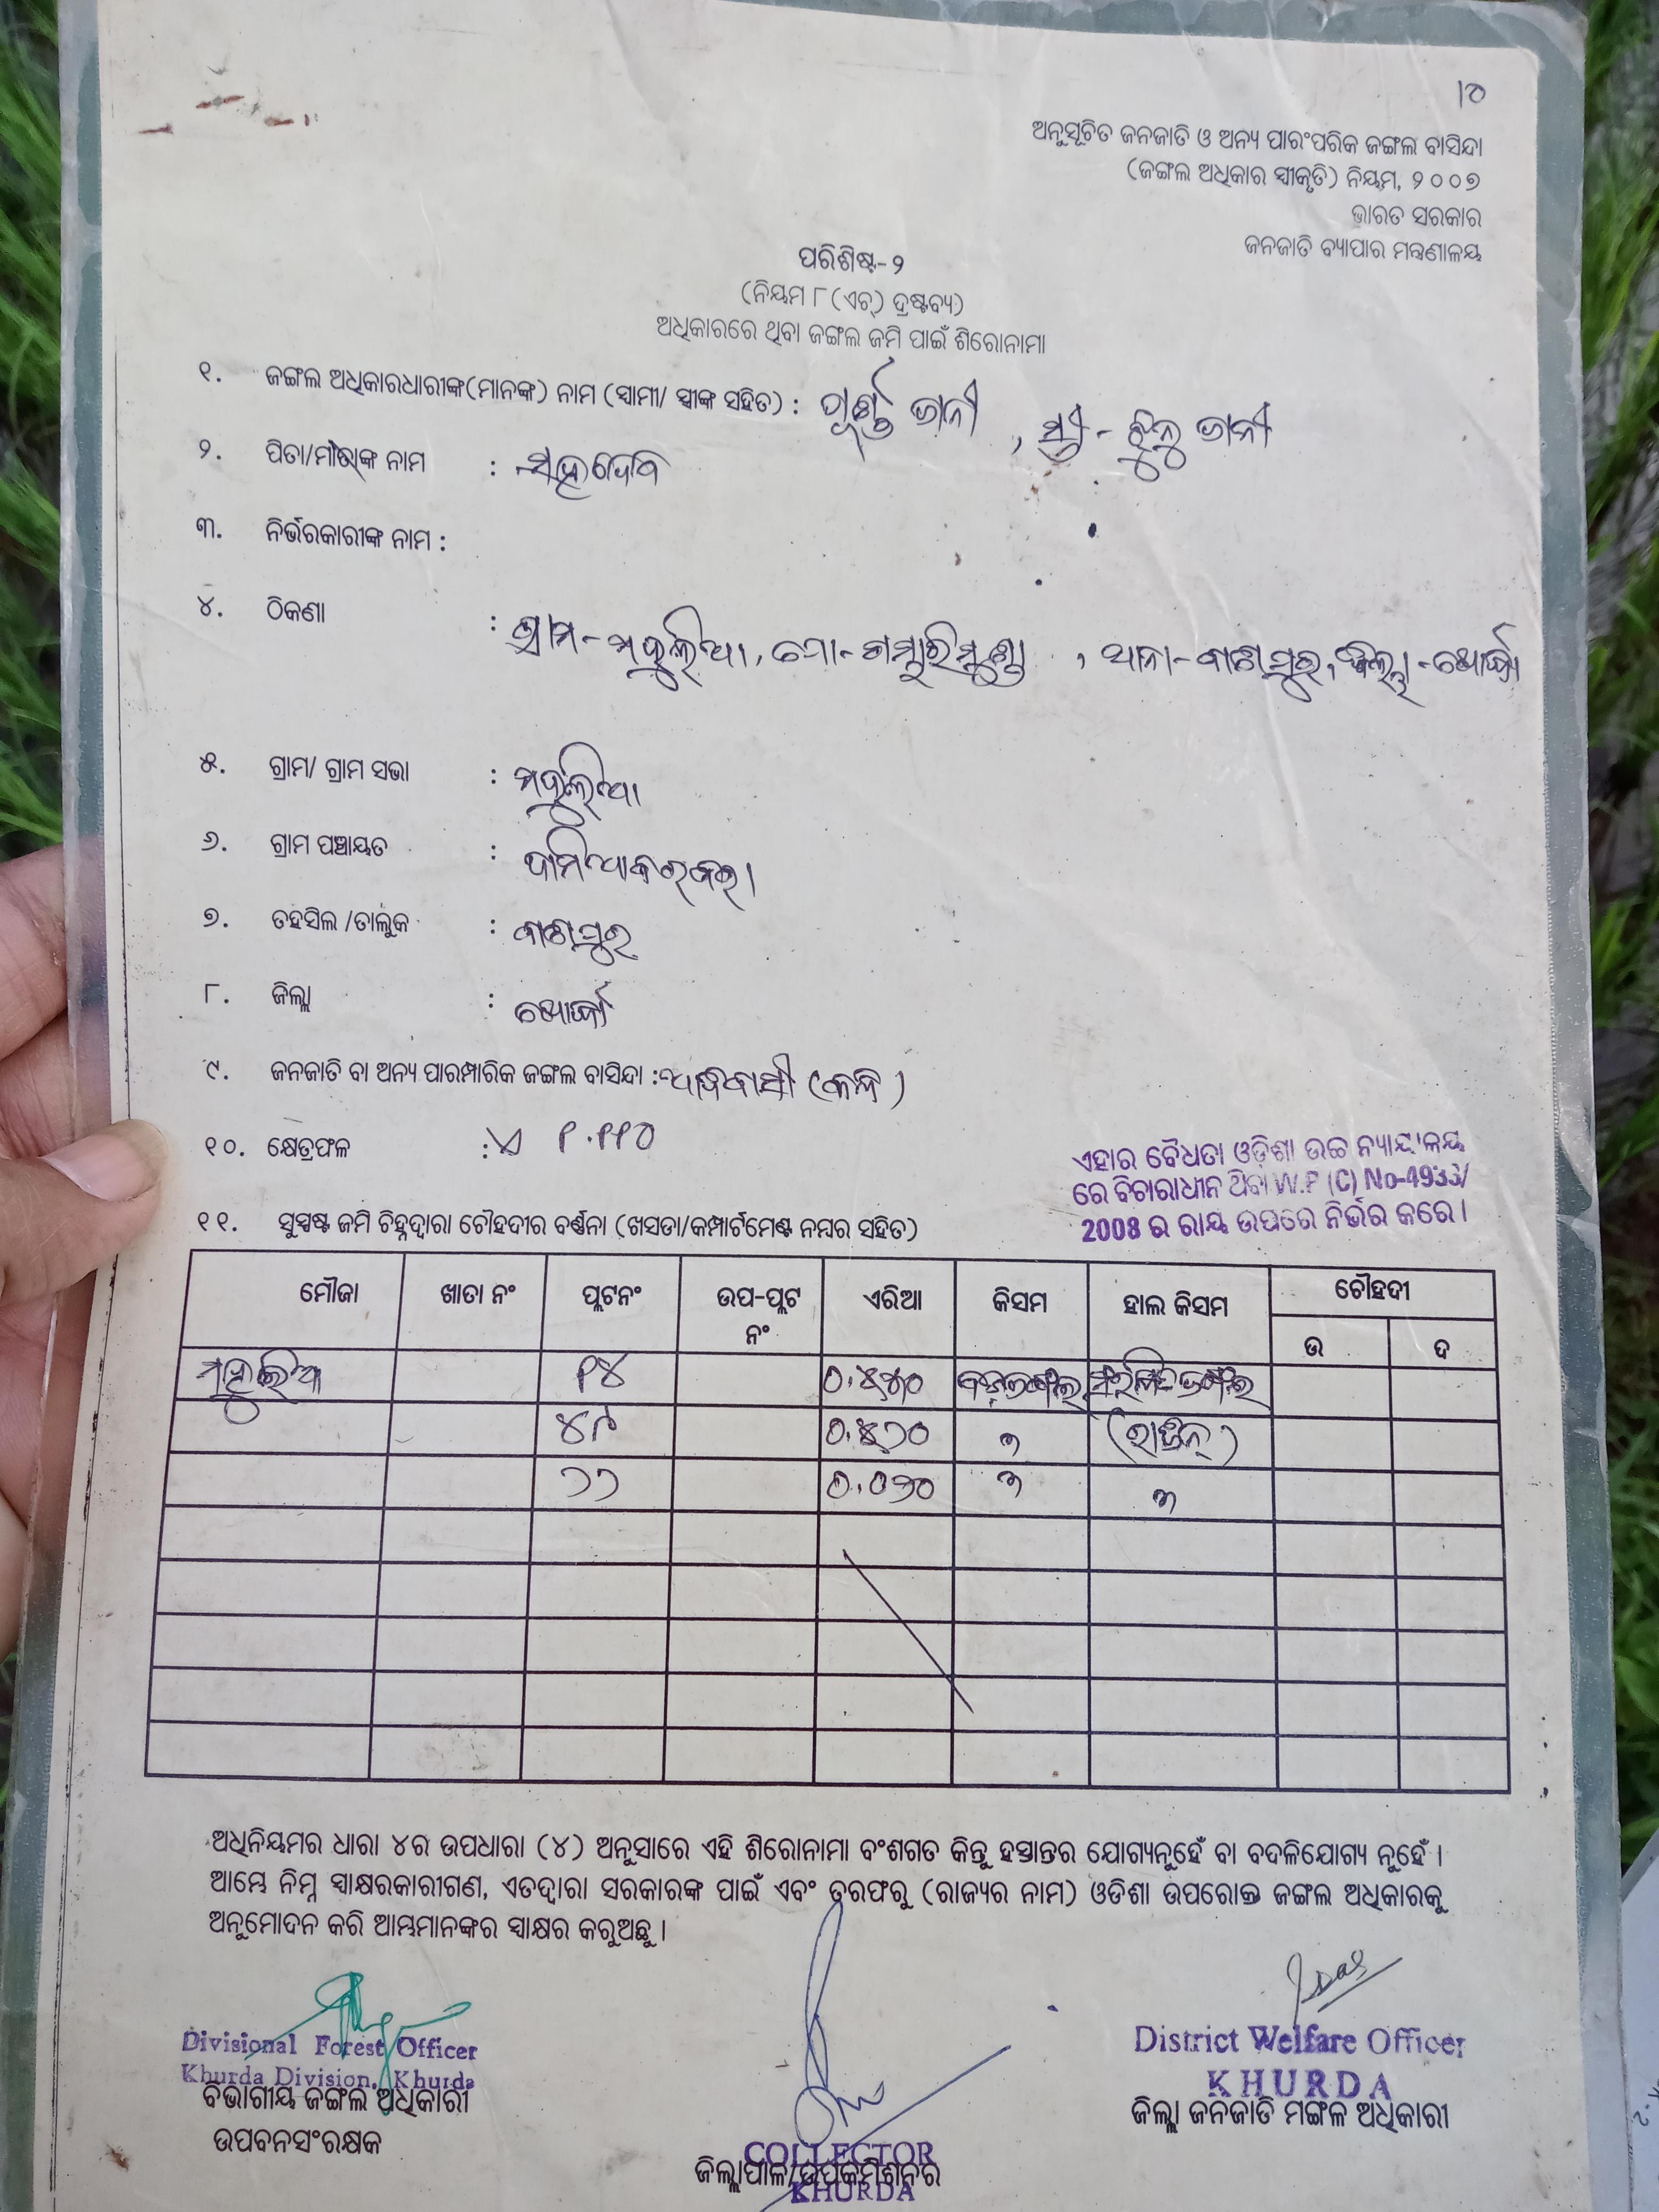 ୧୦
ଅନୁସୂଚିତ ଜନଜାତି ଓ ଅନ୍ୟ ପାରଂପରିକ ଜଙ୍ଗଲ ବାସିନ୍ଦା
(ଜଙ୍ଗଲ ଅଧିକାର ସ୍ୱୀକୃତି) ନିୟମ, ୨୦୦୭
ଭାରତ ସରକାର
ଜନଜାତି ବ୍ୟାପାର ମନ୍ତ୍ରଣାଳୟ
ପରିଶିଷ୍ଟ-୨
(ନିୟମ ୮(ଏଚ୍) ଦ୍ରଷ୍ଟବ୍ୟ)
ଅଧିକାରରେ ଥିବା ଜଙ୍ଗଲ ଜମି ପାଇଁ ଶିରୋନାମା
୧. ଜଙ୍ଗଲ ଅଧିକାରଧାରୀଙ୍କ(ମାନଙ୍କ) ନାମ (ସ୍ୱାମୀ/ ସ୍ତ୍ରୀଙ୍କ ସହିତ) : ପୂର୍ଣ୍ଣ ଜାନୀ , ସ୍ତ୍ରୀ - ଝୁନୁ ଜାନୀ
୨. ପିତା/ମାତାଙ୍କ ନାମ : ସହଦେବ
୩. ନିର୍ଭରକାରୀଙ୍କ ନାମ :
୪. ଠିକଣା : ଗ୍ରାମ-ମହୁଲିଆ, ପୋ-ଗମ୍ଭାରିମୁଣ୍ଡା , ଥାନା-ବାଣପୁର, ଜିଲ୍ଲା-ଖୋର୍ଦ୍ଧା
୫. ଗ୍ରାମ/ ଗ୍ରାମ ସଭା : ମହୁଲିଆ
୬. ଗ୍ରାମ ପଞ୍ଚାୟତ :
୭. ତହସିଲ /ତାଲୁକ : ବାଣପୁର
୮. ଜିଲ୍ଲା : ଖୋର୍ଦ୍ଧା
୯. ଜନଜାତି ବା ଅନ୍ୟ ପାରମ୍ପାରିକ ଜଙ୍ଗଲ ବାସିନ୍ଦା : ଆଦିବାସୀ (କନ୍ଧ)
୧୦. କ୍ଷେତ୍ରଫଳ : ଏ ୧.୧୧୦
ଏହାର ବୈଧତା ଓଡ଼ିଶା ଉଚ୍ଚ ନ୍ୟାୟାଳୟ
ରେ ବିଚାରାଧୀନ ଥିବା W.P (C) No-4933/
2008 ର ରାୟ ଉପରେ ନିର୍ଭର କରେ।
୧୧. ସୁସ୍ପଷ୍ଟ ଜମି ଚିହ୍ନଦ୍ୱାରା ଚୌହଦୀର ବର୍ଣ୍ଣନା (ଖସଡା/କମ୍ପାର୍ଟମେଣ୍ଟ ନମ୍ବର ସହିତ)
ମୌଜା ଖାତା ନଂ ପ୍ଲଟନଂ ଉପ-ପ୍ଲଟ ନଂ ଏରିଆ କିସମ ହାଲ କିସମ ଚୌହଦୀ
ଉ ଦ
ମହୁଲିଆ ୧୪
୪୯ ୦.୫୨୦ ୩
୨୨ ୦.୦୨୦ ୩ ୩
ଅଧିନିୟମର ଧାରା ୪ର ଉପଧାରା (୪) ଅନୁସାରେ ଏହି ଶିରୋନାମା ବଂଶଗତ କିନ୍ତୁ ହସ୍ତାନ୍ତର ଯୋଗ୍ୟନୁହେଁ ବା ବଦଳିଯୋଗ୍ୟ ନୁହେଁ।
ଆମ୍ଭେ ନିମ୍ନ ସ୍ୱାକ୍ଷରକାରୀଗଣ, ଏତଦ୍ୱାରା ସରକାରଙ୍କ ପାଇଁ ଏବଂ ତରଫରୁ (ରାଜ୍ୟର ନାମ) ଓଡିଶା ଉପରୋକ୍ତ ଜଙ୍ଗଲ ଅଧିକାରକୁ
ଅନୁମୋଦନ କରି ଆମ୍ଭମାନଙ୍କର ସ୍ୱାକ୍ଷର କରୁଅଛୁ।
Divisional Forest Officer
Khurda Division, Khurda
ବିଭାଗୀୟ ଜଙ୍ଗଲ ଅଧିକାରୀ
ଉପବନସଂରକ୍ଷକ
COLLECTOR
ଜିଲ୍ଲାପାଳ/ଉପକମିଶନର
KHURDA
District Welfare Officer
KHURDA
ଜିଲ୍ଲା ଜନଜାତି ମଙ୍ଗଳ ଅଧିକାରୀ